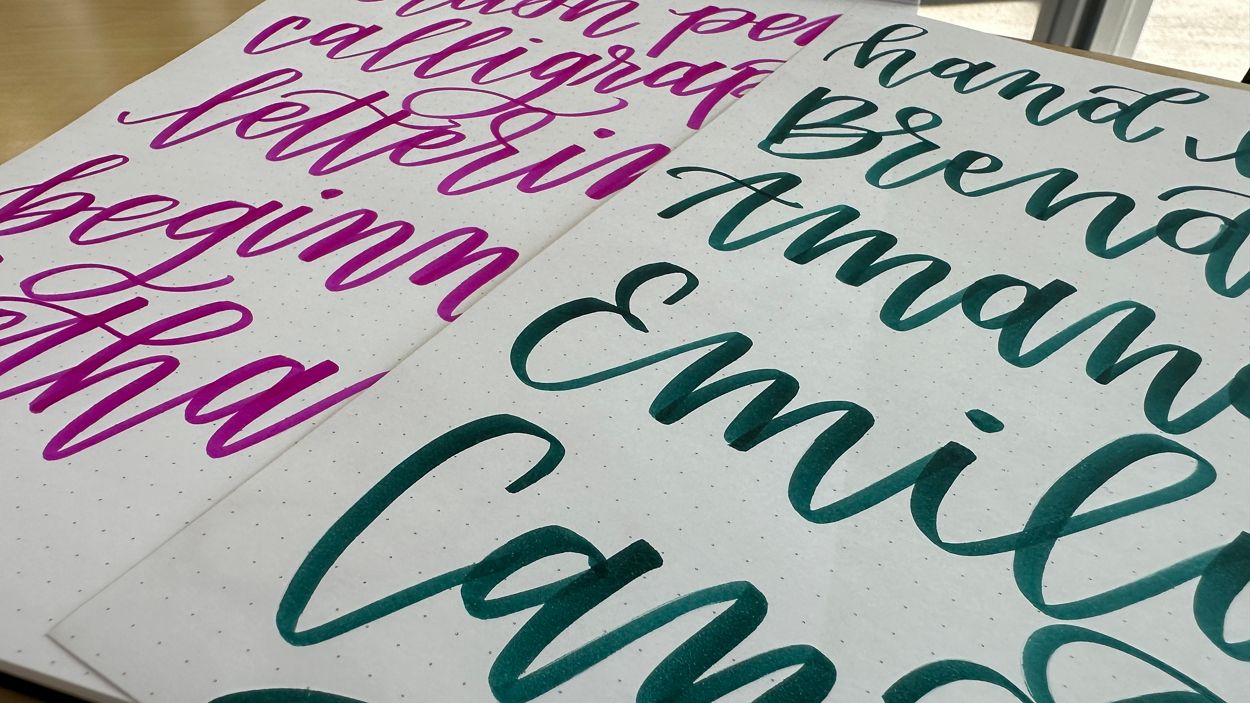 pen
calligrap
letterin
beginn
tha
hand l
Brend
Amand
Emily
Can